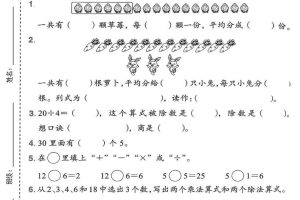 1.
一共有（　　）颗草莓，每（　　）颗一份，平均分成（　　）份。
2.
一共有（　　）根萝卜，平均分给（　　）只小兔，每只小兔分（　　）
根。列式为（　　　　），读作：（　　　　）。
3. 20÷4=（　　），这个算式被除数是（　　），除数是（　　），
想口诀（　　　　），商是（　　）。
4. 30里面有（　　）个5。
5. 在○里填上“＋”“－”“×”或“÷”。
12○6=2　　5○5=25　　5○5=25　　5○1=6
6. 从2、3、4、6和18中选出3个数，写出两个乘法算式和两个除法算式。
姓名：
班级：